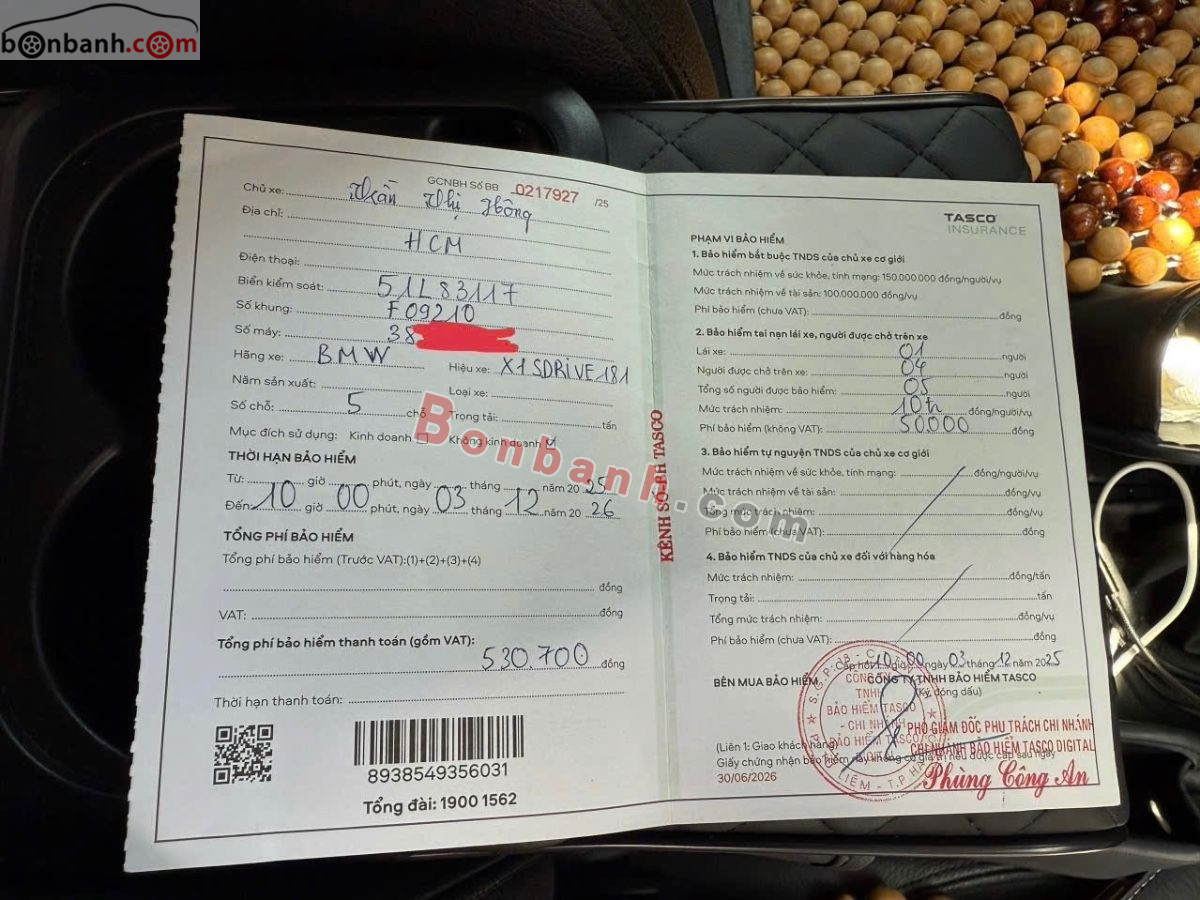 bonbanh.com
GCNBH Số BB 0217927 /25
Chủ xe: Trần Thị Hồng
Địa chỉ:
HCM
Điện thoại:
Biển kiểm soát: 51L83117
Số khung: F09210
Số máy: 38
Hãng xe: BMW Hiệu xe: X1 SDRIVE18I
Năm sản xuất: Loại xe:
Số chỗ: 5 chỗ Trọng tải: tấn
Mục đích sử dụng: Kinh doanh Không kinh doanh
THỜI HẠN BẢO HIỂM
Từ: giờ phút, ngày tháng năm 2025
Đến 10 giờ 00 phút, ngày 03 tháng 12 năm 2026
TỔNG PHÍ BẢO HIỂM
Tổng phí bảo hiểm (Trước VAT):(1)+(2)+(3)+(4)
đồng
VAT: đồng
Tổng phí bảo hiểm thanh toán (gồm VAT):
530.700 đồng
Thời hạn thanh toán:
8938549356031
Tổng đài: 1900 1562
KÊNH SỐ-BH TASCO
TASCO
INSURANCE
PHẠM VI BẢO HIỂM
1. Bảo hiểm bắt buộc TNDS của chủ xe cơ giới
Mức trách nhiệm về sức khỏe, tính mạng: 150.000.000 đồng/người/vụ
Mức trách nhiệm về tài sản: 100.000.000 đồng/vụ
Phí bảo hiểm (chưa VAT): đồng
2. Bảo hiểm tai nạn lái xe, người được chở trên xe
Lái xe: 01 người
Người được chở trên xe: 04 người
Tổng số người được bảo hiểm: 05 người
Mức trách nhiệm: 10tr đồng/người/vụ
Phí bảo hiểm (không VAT): 50.000 đồng
3. Bảo hiểm tự nguyện TNDS của chủ xe cơ giới
Mức trách nhiệm về sức khỏe, tính mạng: đồng/người/vụ
Mức trách nhiệm về tài sản: đồng/vụ
Tổng mức trách nhiệm: đồng/vụ
Phí bảo hiểm (chưa VAT): đồng
4. Bảo hiểm TNDS của chủ xe đối với hàng hóa
Mức trách nhiệm: đồng/tấn
Trọng tải: tấn
Tổng mức trách nhiệm: đồng/vụ
Phí bảo hiểm (chưa VAT): đồng
Cấp hồi 10 giờ 00 ngày 03 tháng 12 năm 2025
BÊN MUA BẢO HIỂM CÔNG TY TNHH BẢO HIỂM TASCO
(Ký, đóng dấu)
CÔNG
TNHH
BẢO HIỂM TASCO
- CHI NHÁNH
BẢO HIỂM TASCO
PHÓ GIÁM ĐỐC PHỤ TRÁCH CHI NHÁNH
CHI NHÁNH BẢO HIỂM TASCO DIGITAL
(Liên 1: Giao khách hàng)
Giấy chứng nhận bảo hiểm này không có giá trị nếu được cấp sau ngày
30/06/2026
Phùng Công An
Bonbanh.com